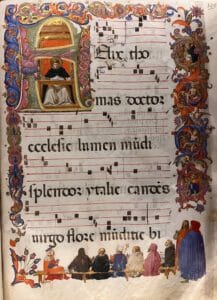 Felix tho
mas doctor
ecclesie lumen mũdi
splendor ytalie candẽs
virgo flore mũditie bi